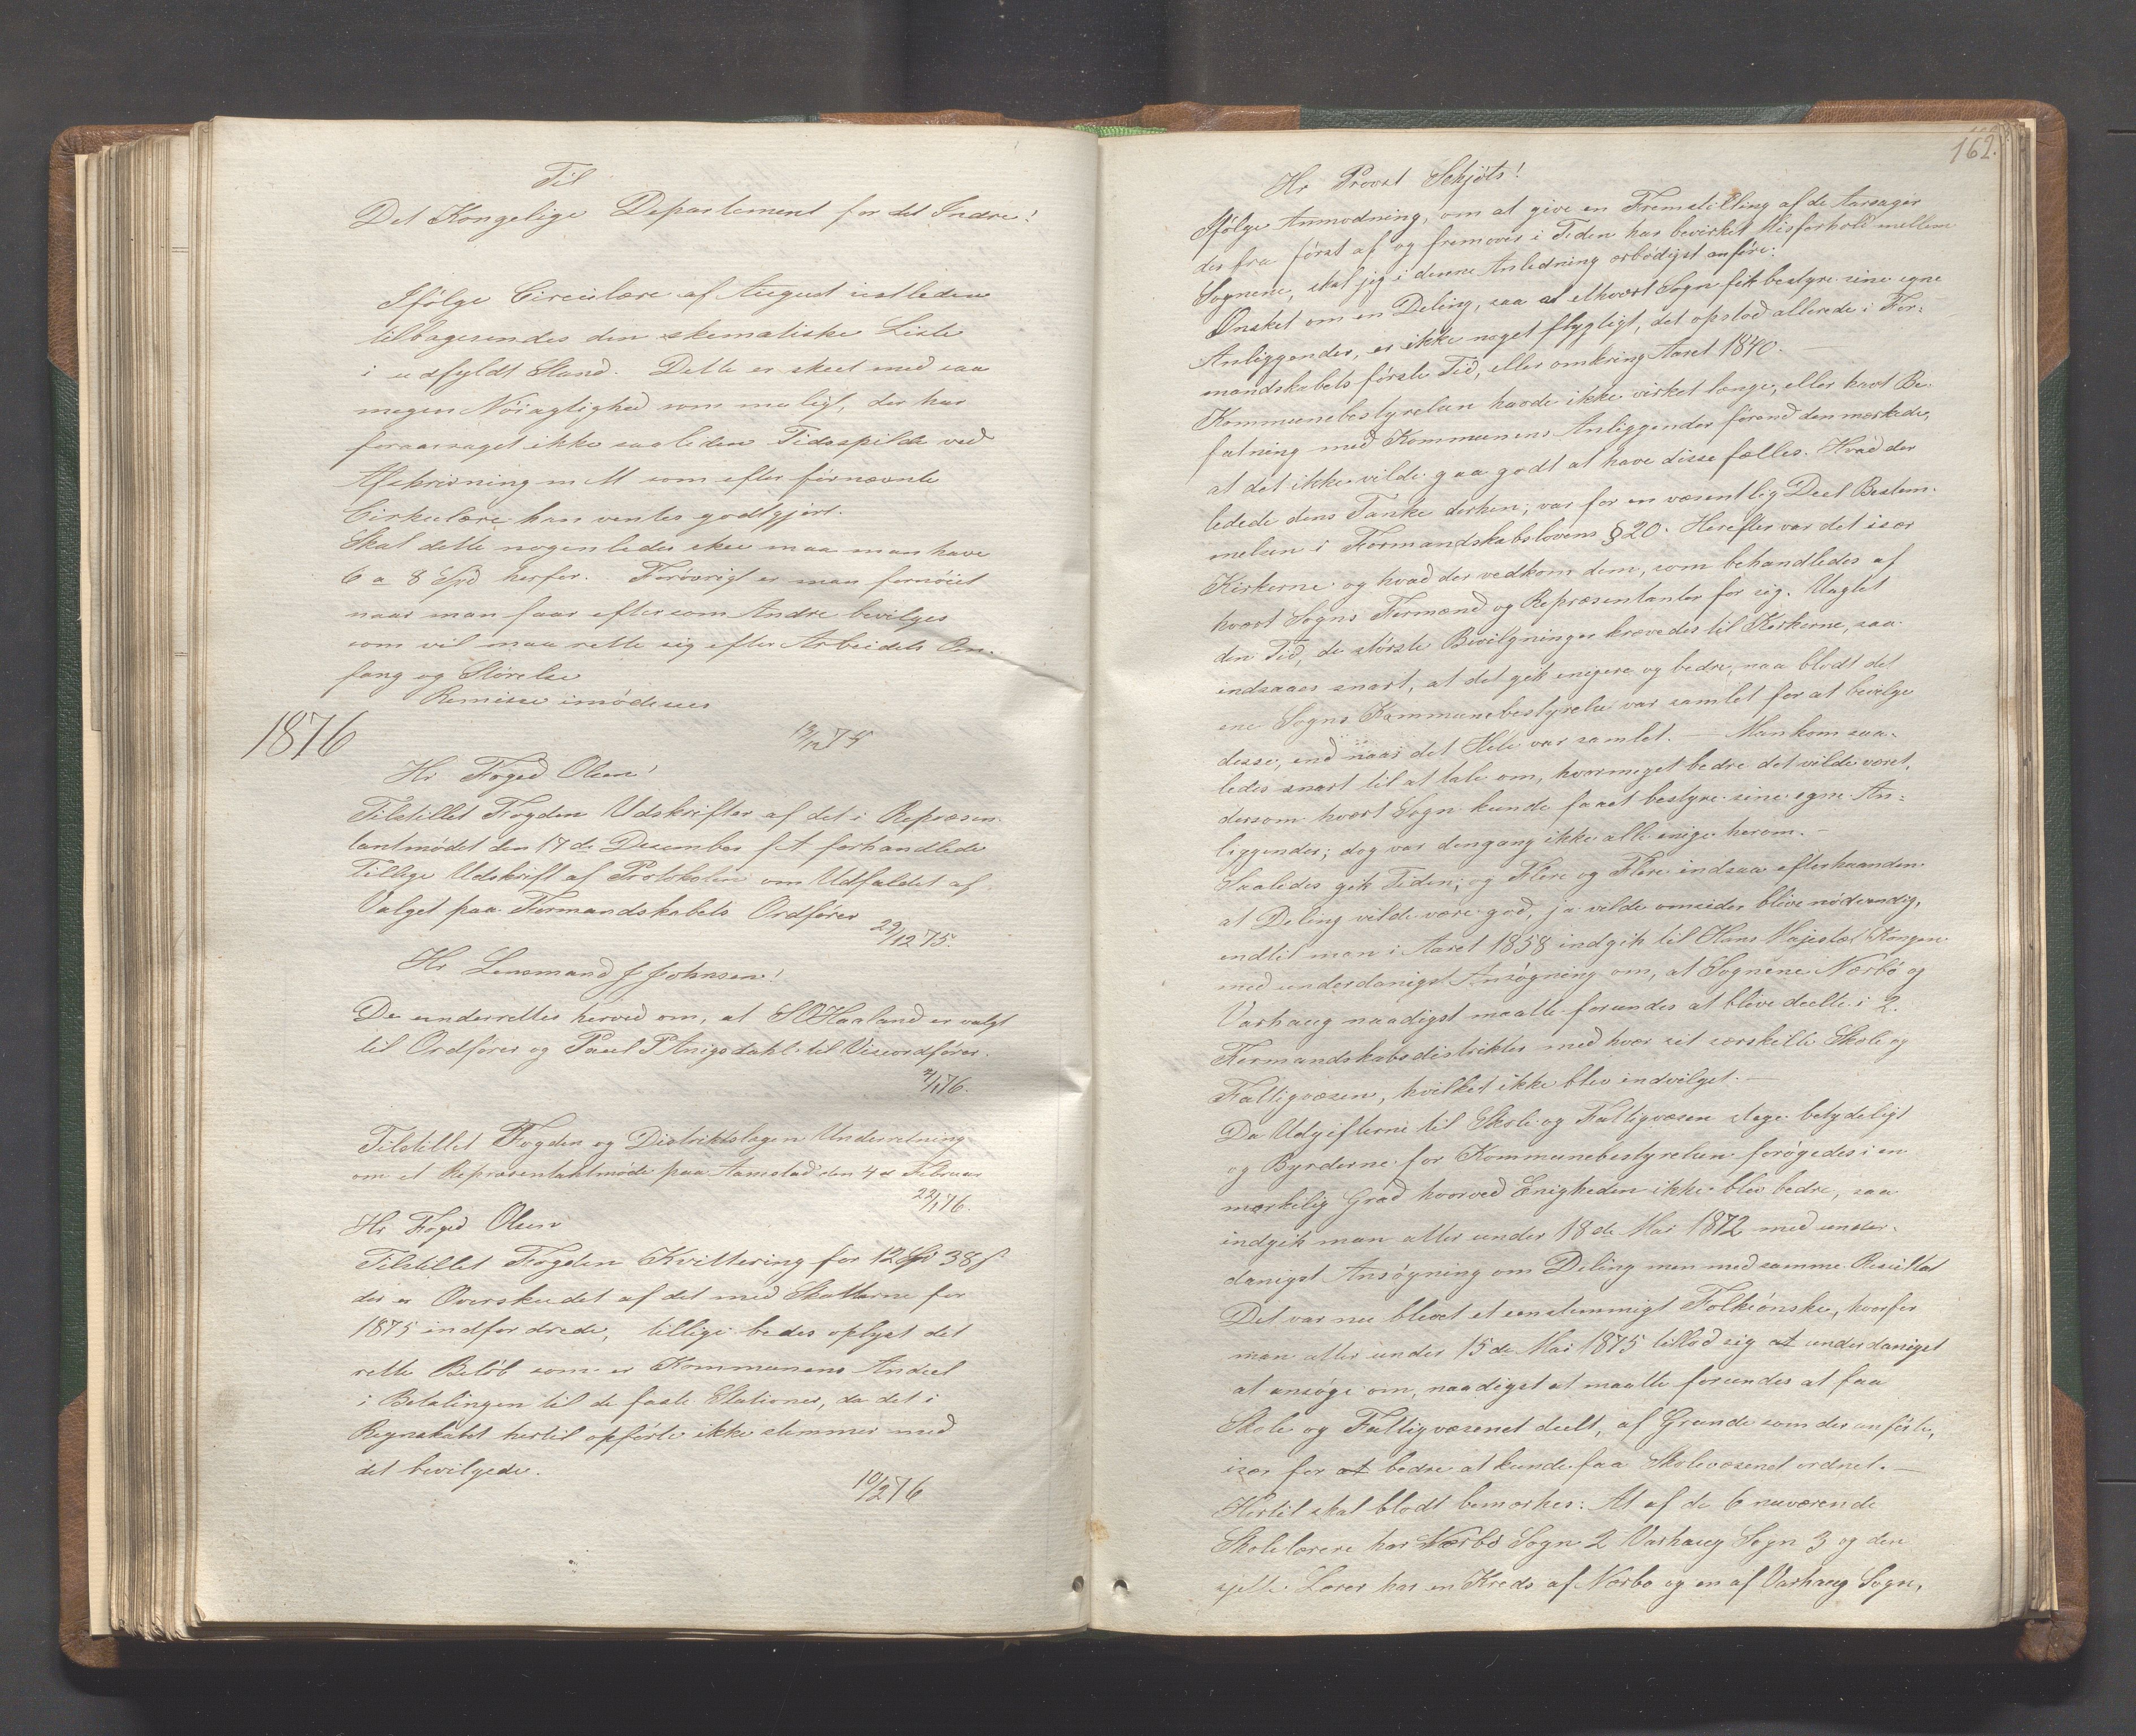 Til
Det Kongelige Departement for det Indre!
Ifölge Circulære af August sidstleden
tilbagesendes den skematiske Liste
i udfyldt Stand. Dette er skeet med saa
megen Nöiagtighed som muligt, der har
foraarsaget ikke saa liden Tidsspilde ved
Afskrivning m M som efter förnævnte
Cirkulære kan ventes godtgjort.
Skal dette nogenledes skee maa man have
6 a 8 Spd herfor. Forövrigt er man fornöiet
naar man faar eftersom Andre bevilges
som vil maa rette sig efter Arbeidets Om-
fang og Störelse
Remisse imödesees
1876
Hr Foged Olsen!
Tilstillet Fogden Udskrifter af det i Repræsen-
tantmödet den 17de Desember f A forhandlede
Tillige Udskrift af Protokolen om Udfaldet af
Valget paa Formandskabets Ordförer
29/12 75.
Hr Lensmand J Johnsen!
De underrettes herved om, at S O Haaland er valgt
til Ordförer og Paul P Anigsdahl til Viseordförer.
/1 76.
Tilstillet Fogden og Distriktslægen Underretning
om et Repræsentantmöde paa Aamstad den 4de Februar
22/1 76.
Hr Foged Olsen
Tilstillet Fogden Kvittering for 12 Spd 38 s
der er Overskudet af det med Skatterne for
1875 indfordrede, tillige bedes oplyst det
rette Belöb som er Kommunens Andeel
i Betalingen til de faste Stationer, da det i
Regnskabet hertil opförte ikke stemmer med
det bevilgede.
10/2 76
162.
Hr Provst Schjöts!
Ifölge Anmodning, om at give en Fremstilling af de Aarsager
der fra först af og fremover i Tiden har bevirket Misforhold mellem
Sognene, skal jeg i denne Anledning ærbödigst anföre:
Önsket om en Deling, saa at ethvert Sogn fik bestyre sine egne
Anliggender, er ikke noget flygtigt, det opstod allerede i For-
mandskabets förste Tid, eller omkring Aaret 1840. —
Kommunebestyrelsen havde ikke virket længe, eller havt Be-
fatning med Kommunens Anliggender förend den mærkede,
at det ikke vilde gaa godt at have disse fælles. Hvad der
ledede dens Tanke derhen, var for en væsentlig Deel Bestem-
melsen i Formandskabslovens § 20. Herefter var det især
Kirkerne og hvad der vedkom dem, som behandledes af
hvert Sogns Formænd og Repræsentanter for sig. Uagtet
den Tid, de störste Bevilgninger krævedes til Kirkerne, saa
indsaaes snart, at det gik enigere og bedre, naa blodt det
ene Sogns Kommunebestyrelse var samlet for at bevilge
disse, end naar det Hele var samlet. — Man kom saa-
ledes snart til at tale om, hvormeget bedre det vilde været,
dersom hvert Sogn kunde faaet bestyre sine egne An-
liggender; dog var dengang ikke alle enige herom. —
Saaledes gik Tiden, og Flere og Flere indsaa efterhaanden
at Deling vilde være god, ja vilde omsider blive nödvendig,
endtil man i Aaret 1858 indgik til Hans Majestæt Kongen
med underdanigst Ansögning om, at Sognene Nærbö og
Varhaug naadigst maatte forundes at blive deelte i 2.
Formandskabsdistrikter med hver sit særskilte Skole og
Fattigvæsen, hvilket ikke blev indvilget. —
Da Udgifterne til Skole og Fattigvæsen stege betydeligt
og Byrderne for Kommunebestyrelsen forögedes i en
mærkelig Grad hvorved Enigheden ikke blev bedre, saa
indgik man atter under 18de Mai 1872 med under-
danigst Ansögning om Deling men med samme Resultat
Det var nu blevet et enstemmigt Folkeönske, hvorfor
man atter under 15de Mai 1875 tillod sig at underdanigst
at ansöge om, naadigst at maatte forundes at faa
Skole og Fattigvæsenet deelt, af Grunde som der anförtes,
især for at bedre at kunde faa Skolevæsenet ordnet. —
Hertil skal blodt bemærkes: At af de 6 nuværende
Skolelærere har Nærbö Sogn 2 Varhaug Sogn 3 og den
sjette Lærer har en Kreds af Nærbo og en af Varhaug Sogn,